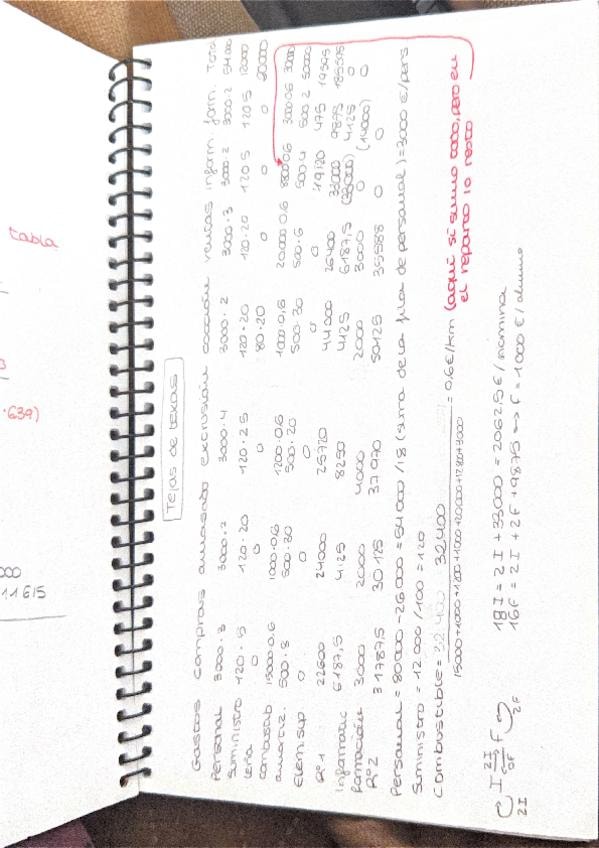 tabla
.639)
000
11615
Tejas de texas
Gastos compras amasado extrusión cocción ventas inform. form. Total
Personal 3000.3 3000.2 3000.4 3000.2 3000.3 3000.2 3000.2 54000
Suministro 120.5 120.20 120.25 120.20 120.20 120.5 120.5 12000
Leña 0 0 0 80.20 0 0 0
combustib 15000.0.6 1000.0,6 1200.0.6 1000.0,6 20000.0.6 0.6 3000.0.6
amortiz. 500.5 500.30 500.20 500.30 500.6 500.4 500.2 50000
Elem.sup 0 0 0 0 0
Rº1 22600 24000 25720 44000 26400 475
Informátic 6187,5 4125 8250 4125 6187,5 33000 9875
(33000) 4125
Formación 3000 2000 4000 2000 3000 0 (14000) 0
Rº2 31787,5 30125 37970 50125 35588 0 0
Personal = 80000 - 26000 = 54000 / 18 (suma de la fila de personal) = 3000 €/pers
Suministro = 12.000 / 100 = 120
Combustible = 32.400 32400 / 15000+1000+1200+1000+20000+12800+3000 = 0,6€/km (aquí sí sumo todo, pero en
el reparto lo resto
18I = 2I + 33000 = 2062.5 €/nómina
16F = 2I + 2F + 9875 => F = 1000 €/alumno
I 2I F
0F
2I 2F